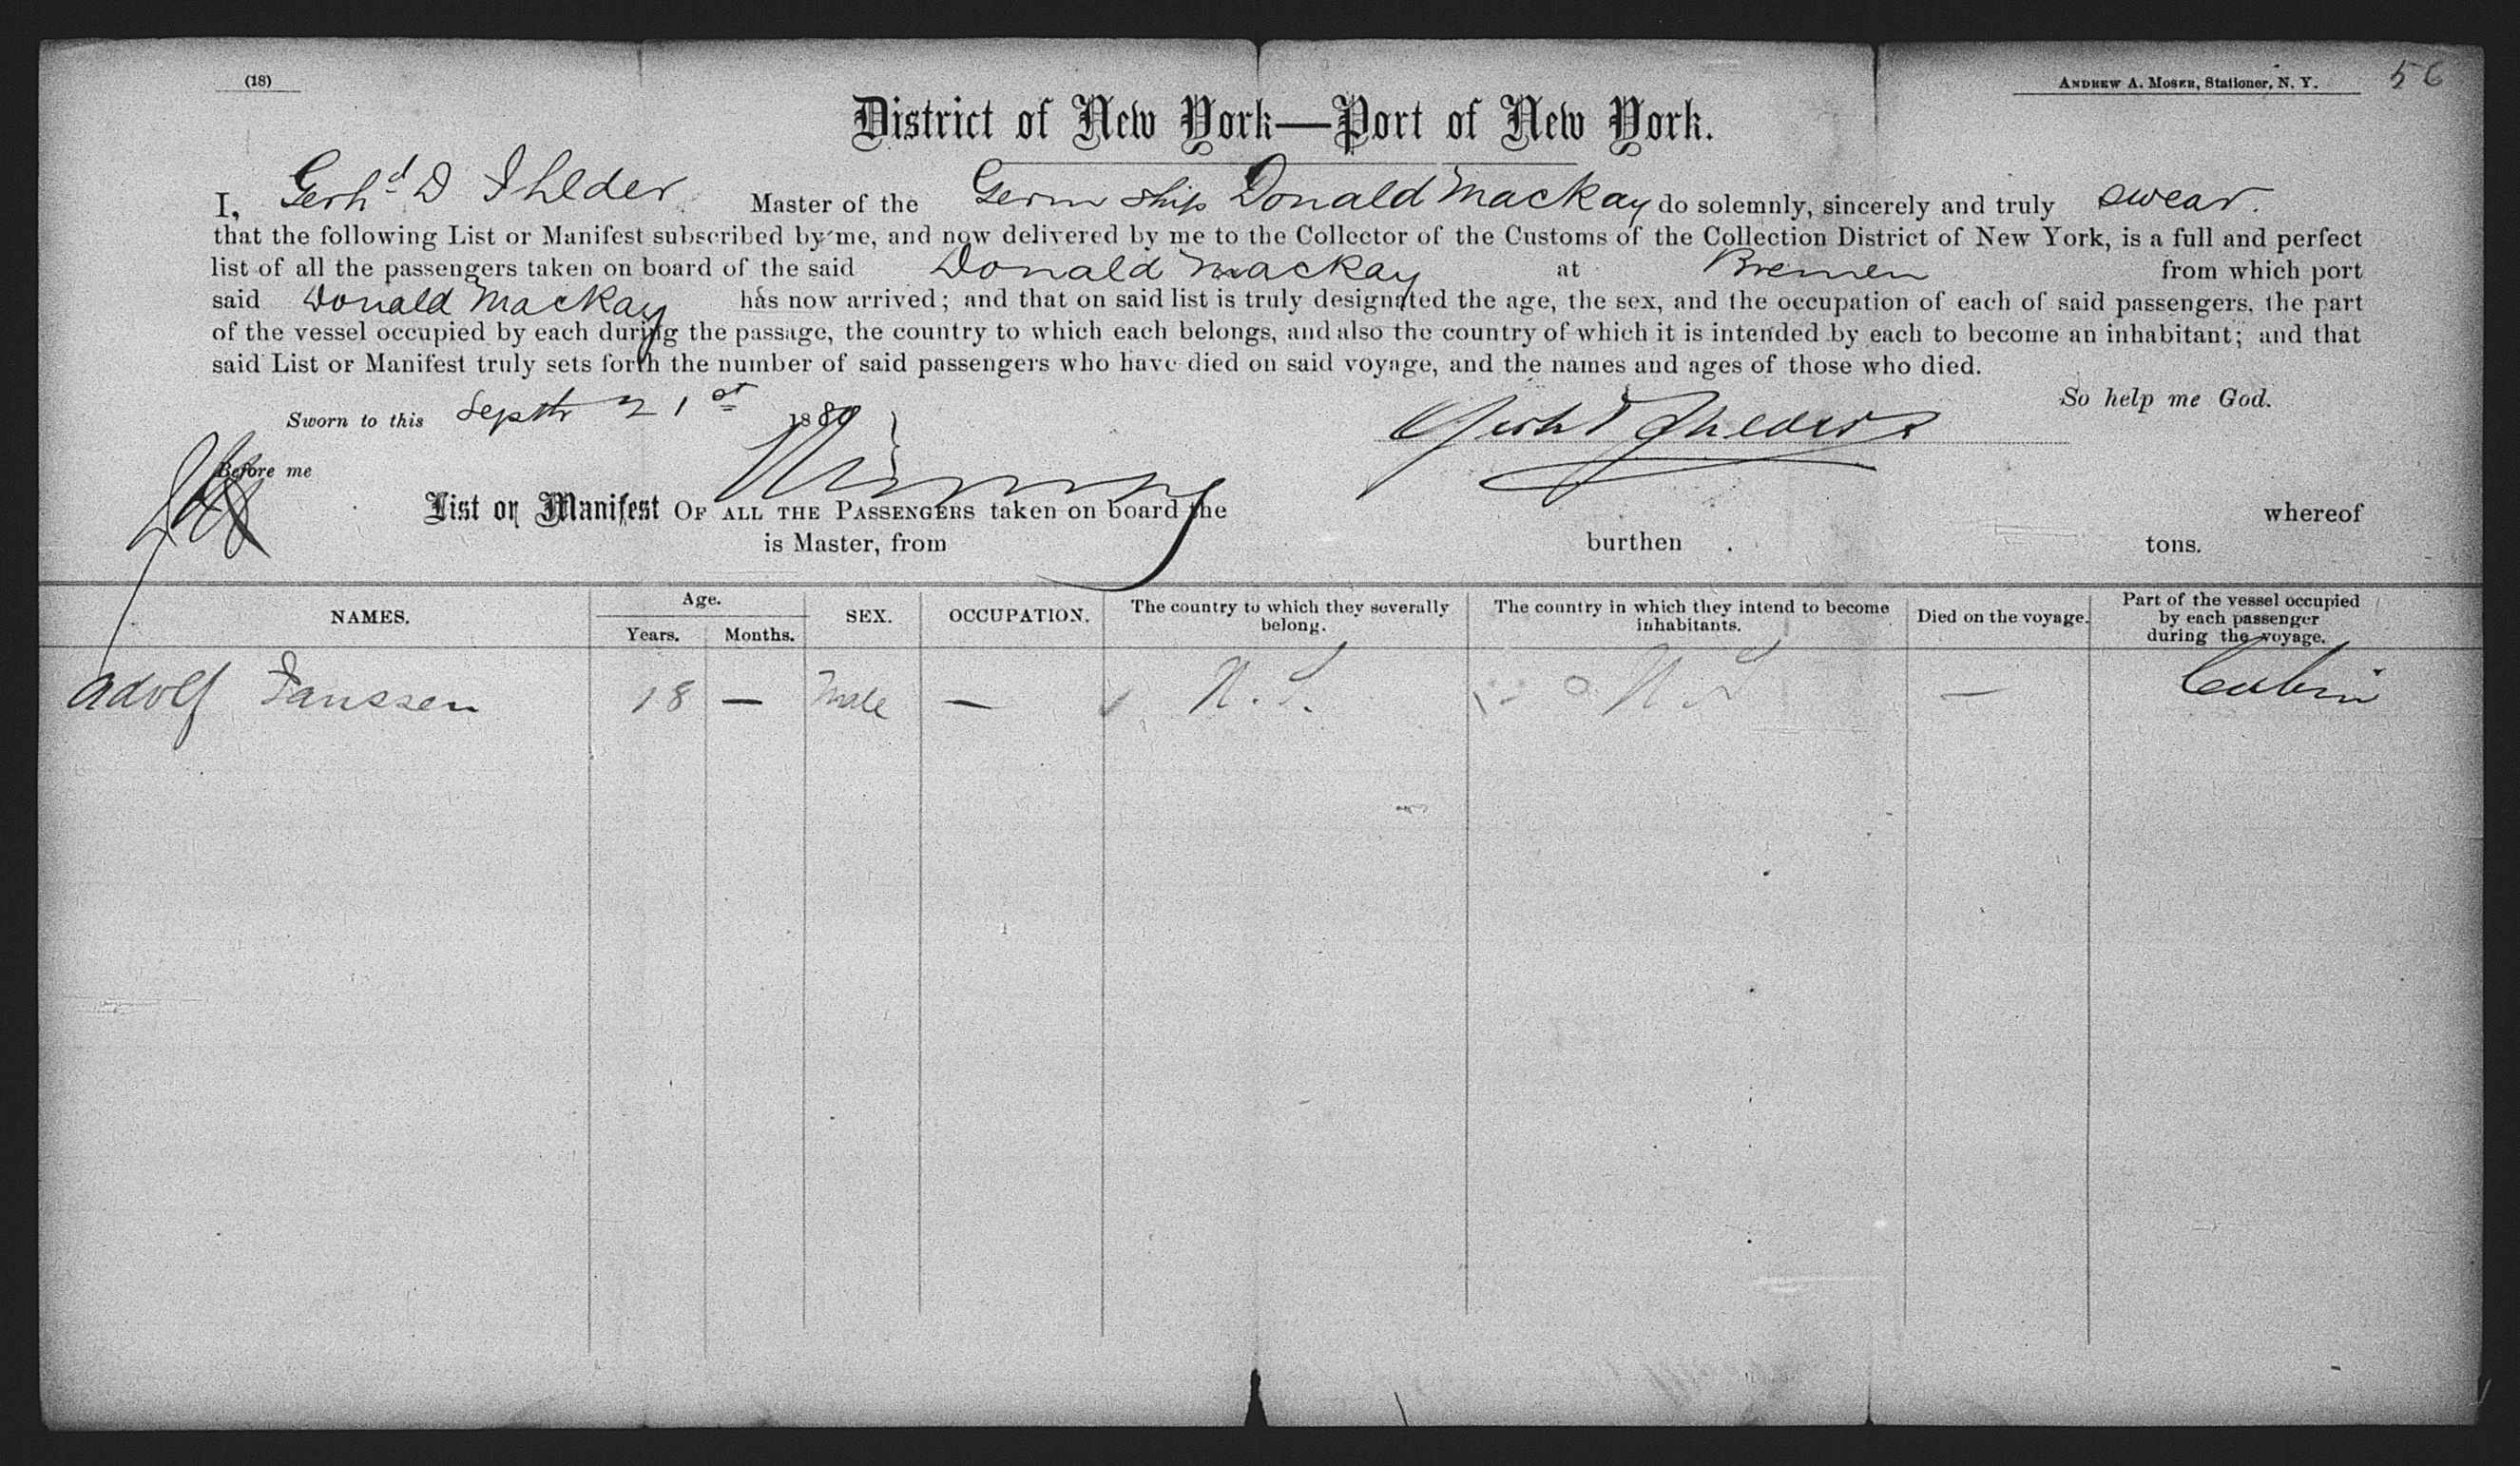 (18)
ANDREW A. MOSER, Stationer, N. Y.
56
District of New York—Port of New York.
I, Gerhd D Ihlder Master of the Germ ship Donald Mackay do solemnly, sincerely and truly swear.
that the following List or Manifest subscribed by me, and now delivered by me to the Collector of the Customs of the Collection District of New York, is a full and perfect
list of all the passengers taken on board of the said Donald Mackay at Bremen from which port
said Donald Mackay has now arrived; and that on said list is truly designated the age, the sex, and the occupation of each of said passengers, the part
of the vessel occupied by each during the passage, the country to which each belongs, and also the country of which it is intended by each to become an inhabitant; and that
said List or Manifest truly sets forth the number of said passengers who have died on said voyage, and the names and ages of those who died.
So help me God.
Sworn to this Septbr 21st 1880
Before me
List or Manifest OF ALL THE PASSENGERS taken on board the whereof
is Master, from burthen tons.
NAMES. Age. Years. Months. SEX. OCCUPATION. The country to which they severally belong. The country in which they intend to become inhabitants. Died on the voyage. Part of the vessel occupied by each passenger during the voyage.
Adolf Janssen 18 — Male — — Cabin